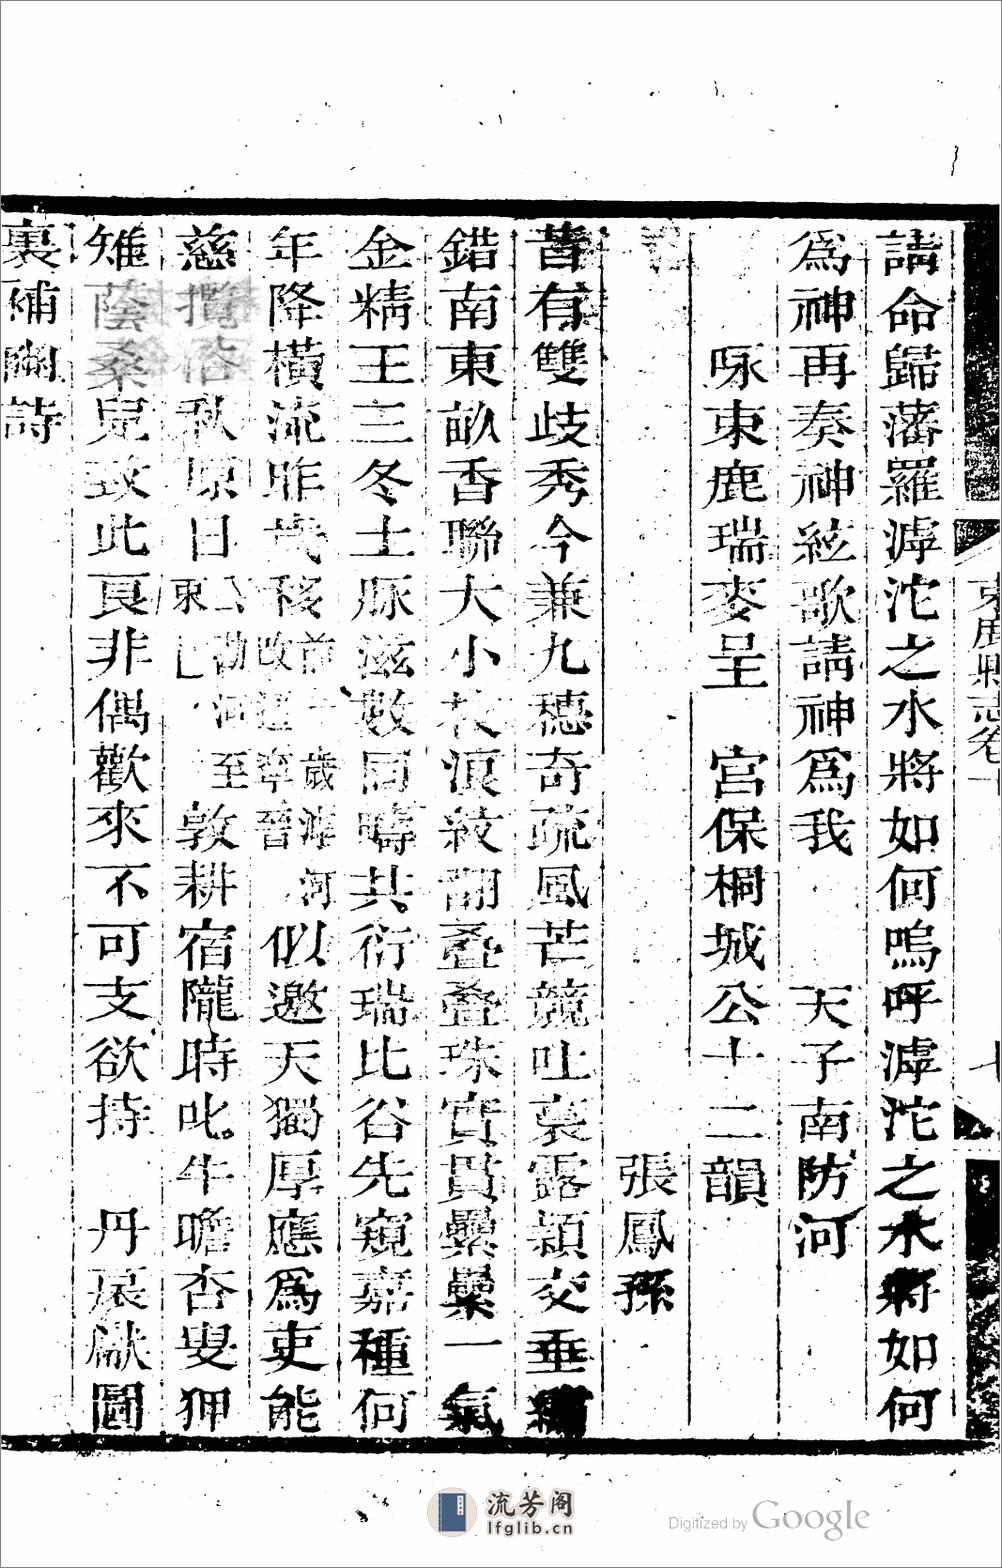 束鹿縣志卷十
請命歸藩羅滹沱之水將如何嗚呼滹沱之水將如何
爲神再奏神絃歌請神爲我 天子南防河
咏束鹿瑞麥呈 宮保桐城公十二韻
張鳳孫
昔有雙歧秀今兼九穗奇疏風芒競吐裛露穎交垂
錯南東畝香聯大小枝浪紋翻疊疊珠實貫纍纍一氣
金精王三冬土脈滋數同疇共衍瑞比谷先窺嘉種何
年降橫流昨歲移前一歲滹河改逕寧晉似邀天獨厚應爲吏能
慈攬轡秋原日公勘河至束敦耕宿隴時叱牛瞻杏叟狎
雉蔭桑兒致此良非偶歡來不可支欲持 丹扆獻圖
裏補豳詩
流芳阁
lfglib.cn
Digitized by Google